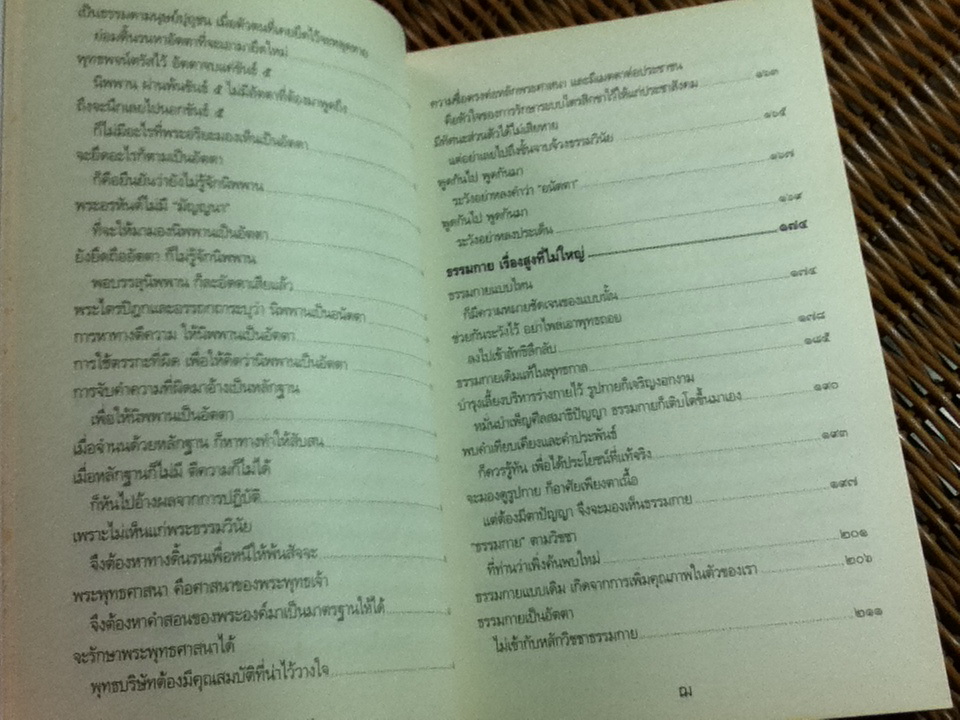 เป็นธรรมดามนุษย์ปุถุชน เมื่อตัวตนที่เคยยึดไว้จะหลุดหาย
ย่อมดิ้นรนหาอัตตาที่จะเอามายึดใหม่
พุทธพจน์ตรัสไว้ อัตตาจบแค่ขันธ์ ๕
นิพพาน ผ่านพ้นขันธ์ ๕ ไม่มีอัตตาที่ต้องมาพูดถึง
ถึงจะนึกเลยไปนอกขันธ์ ๕
ก็ไม่มีอะไรที่พระอริยะมองเห็นเป็นอัตตา
จะยึดอะไรก็ตามเป็นอัตตา
ก็คือยืนยันว่ายังไม่รู้จักนิพพาน
พระอรหันต์ไม่มี "มัญญนา"
ที่จะให้มามองนิพพานเป็นอัตตา
ยังยึดถืออัตตา ก็ไม่รู้จักนิพพาน
พอบรรลุนิพพาน ก็ละอัตตาเสียแล้ว
พระไตรปิฎกและอรรถกถาระบุว่า นิพพานเป็นอนัตตา
การหาทางตีความ ให้นิพพานเป็นอัตตา
การใช้ตรรกะที่ผิด เพื่อให้คิดว่านิพพานเป็นอัตตา
การจับคำความที่ผิดมาอ้างเป็นหลักฐาน
เพื่อให้นิพพานเป็นอัตตา
เมื่อจำนนด้วยหลักฐาน ก็หาทางทำให้สับสน
เมื่อหลักฐานก็ไม่มี ตีความก็ไม่ได้
ก็หันไปอ้างผลจากการปฏิบัติ
เพราะไม่เห็นแก่พระธรรมวินัย
จึงต้องหาทางดิ้นรนเพื่อหนีให้พ้นสัจจะ
พระพุทธศาสนา คือศาสนาของพระพุทธเจ้า
จึงต้องหาคำสอนของพระองค์มาเป็นมาตรฐานให้ได้
จะรักษาพระพุทธศาสนาได้
พุทธบริษัทต้องมีคุณสมบัติที่น่าไว้วางใจ
ความซื่อตรงต่อหลักพระศาสนา และมีเมตตาต่อประชาชน
คือหัวใจของการรักษาระบบไตรสิกขาไว้ให้แก่ประชาสังคม ๑๖๓
มีทัศนะส่วนตัวได้ไม่เสียหาย
แต่อย่าเลยไปถึงขั้นจาบจ้วงธรรมวินัย ๑๖๕
พูดกันไป พูดกันมา
ระวังอย่าหลงคำว่า "อนัตตา" ๑๖๗
พูดกันไป พูดกันมา
ระวังอย่าหลงประเด็น ๑๖๙
ธรรมกาย เรื่องสูงที่ไม่ใหญ่ ๑๗๔
ธรรมกายแบบไหน
ก็มีความหมายชัดเจนของแบบนั้น ๑๗๔
ช่วยกันระวังไว้ อย่าไพล่เอาพุทธถอย
ลงไปเข้าลัทธิลึกลับ ๑๗๘
ธรรมกายเดิมแท้ในพุทธกาล ๑๘๕
บำรุงเลี้ยงบริหารร่างกายไว้ รูปกายก็เจริญงอกงาม
หมั่นบำเพ็ญศีลสมาธิปัญญา ธรรมกายก็เติบโตขึ้นมาเอง ๑๙๐
พบคำเทียบเคียงและคำประพันธ์
ก็ควรรู้ทัน เพื่อได้ประโยชน์ที่แท้จริง ๑๙๓
จะมองดูรูปกาย ก็อาศัยเพียงตาเนื้อ
แต่ต้องมีตาปัญญา จึงจะมองเห็นธรรมกาย ๑๙๗
"ธรรมกาย" ตามวิชชา
ที่ท่านว่าเพิ่งค้นพบใหม่ ๒๐๑
ธรรมกายแบบเดิม เกิดจากการเพิ่มคุณภาพในตัวของเรา ๒๐๖
ธรรมกายเป็นอัตตา
ไม่เข้ากับหลักวิชชาธรรมกาย ๒๑๑
ฌ